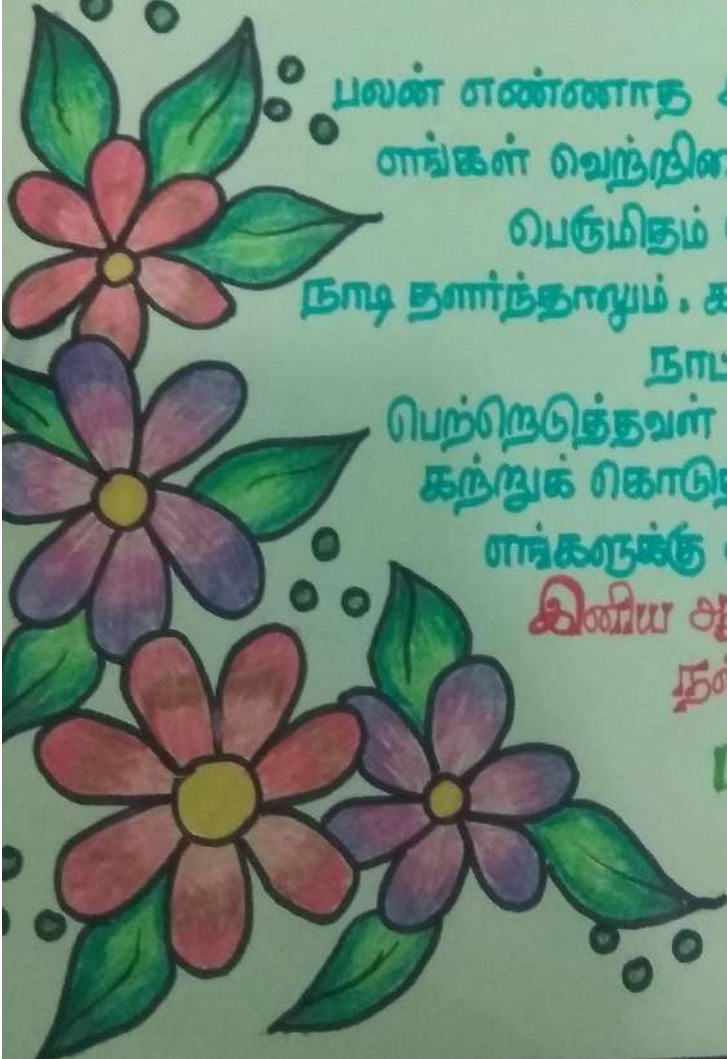 பலன் எண்ணாத
எங்கள் வெற்றி
பெருமிதம்
நாடி தளர்ந்தாலும்.
நாட
பெற்றெடுத்தவள்
கற்றுக் கொடு
எங்களுக்கு
இனிய ஆ
நல்